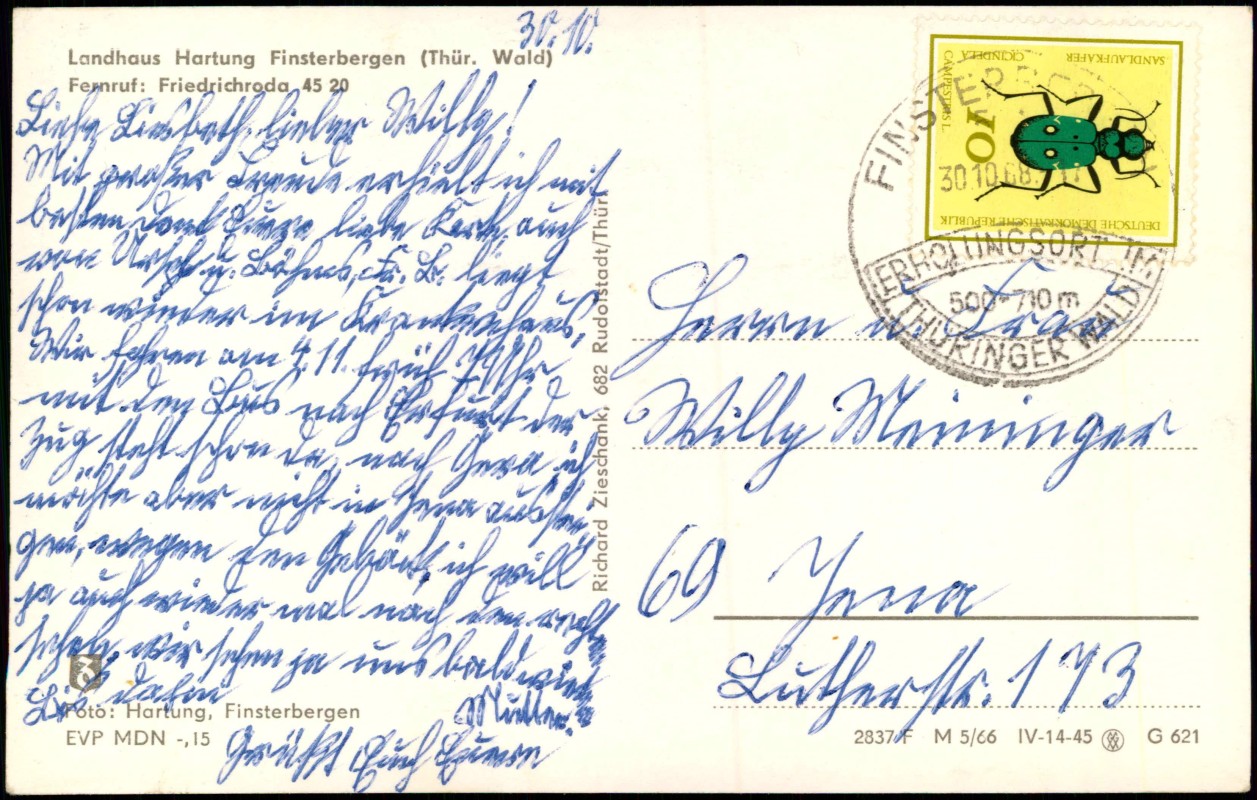 30.10.
Landhaus Hartung Finsterbergen (Thür. Wald)
Fernruf: Friedrichroda 45 20
Liebe Liesbeth, lieber Willy!
Mit großer Freude erhielt ich mit
besten Dank Eure liebe Karte, auch
von u. Böhms, Fr. B. liegt
schon wieder im Krankenhaus,
Wir fahren am 4.11. früh Uhr
mit den Bus nach Erfurt der
Zug steht schon da, nach Gera ich
möchte aber nicht in Jena ausstei
gen, wegen den Gepäck, ich will
ja auch wieder mal nach dem rechten
sehen, wir sehen ja uns bald wieder
Bis dahin
Grüßt Euch Eure
Mutter.
Foto: Hartung, Finsterbergen
EVP MDN -,15
Richard Zieschank, 682 Rudolstadt/Thür.
SANDLAUFKÄFER
CICINDELA
CAMPESTRIS L.
10
DEUTSCHE DEMOKRATISCHE REPUBLIK
30.10.68
ERHOLUNGSORT IM
500-710 m
THÜRINGER WALD
Herrn u. Frau
Willy Meininger
69 Jena
Lutherstr. 173
2837 F M 5/66 IV-14-45 G 621